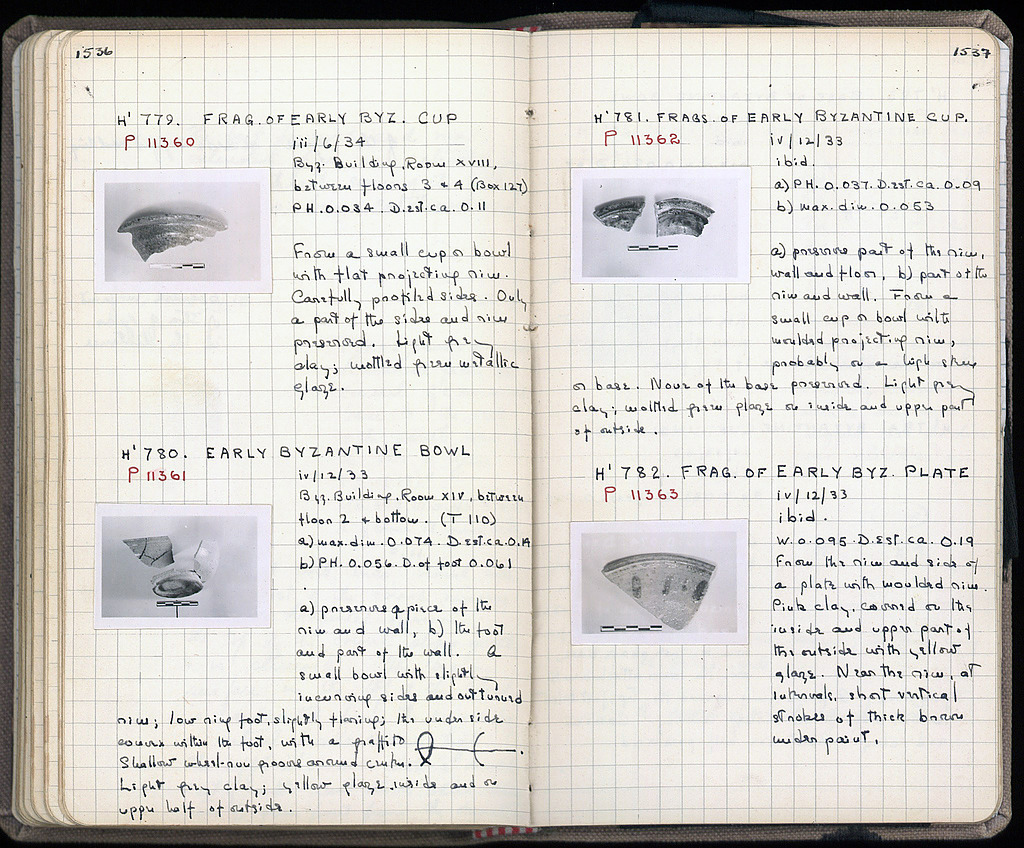 1536
H' 779. FRAG. OF EARLY BYZ. CUP
P 11360
iii/6/34
Byz. Building, Room XVIII,
between floors 3 & 4 (Box 127)
PH. 0.034. D. est. ca. 0.11
From a small cup or bowl
with flat projecting rim.
Carefully profiled sides. Only
a part of the sides and rim
preserved. Light grey
clay; mottled green metallic
glaze.
H' 780. EARLY BYZANTINE BOWL
P 11361
iv/12/33
Byz. Building, Room XIV, between
floor 2 & bottom. (T 110)
a) max. dim. 0.074. D. est. ca. 0.14
b) PH. 0.056. D. of foot 0.061
a) preserves a piece of the
rim and wall, b) the foot
and part of the wall. A
small bowl with slightly
incurving sides and outturned
rim; low ring foot, slightly flaring; the under side
convex within the foot, with a graffito
Shallow wheel-run groove around center.
Light grey clay; yellow glaze inside and on
upper half of outside.
1537
H' 781. FRAGS. OF EARLY BYZANTINE CUP.
P 11362
iv/12/33
ibid.
a) PH. 0.037. D. est. ca. 0.09
b) max. dim. 0.053
a) preserves part of the rim,
wall and floor, b) part of the
rim and wall. From a
small cup or bowl with
moulded projecting rim,
probably on a high stem
or base. None of the base preserved. Light grey
clay; mottled green glaze on inside and upper part
of outside.
H' 782. FRAG. OF EARLY BYZ. PLATE
P 11363
iv/12/33
ibid.
W. 0.095. D. est. ca. 0.19
From the rim and side of
a plate with moulded rim.
Pink clay, covered on the
inside and upper part of
the outside with yellow
glaze. Near the rim, at
intervals, short vertical
strokes of thick brown
under paint.